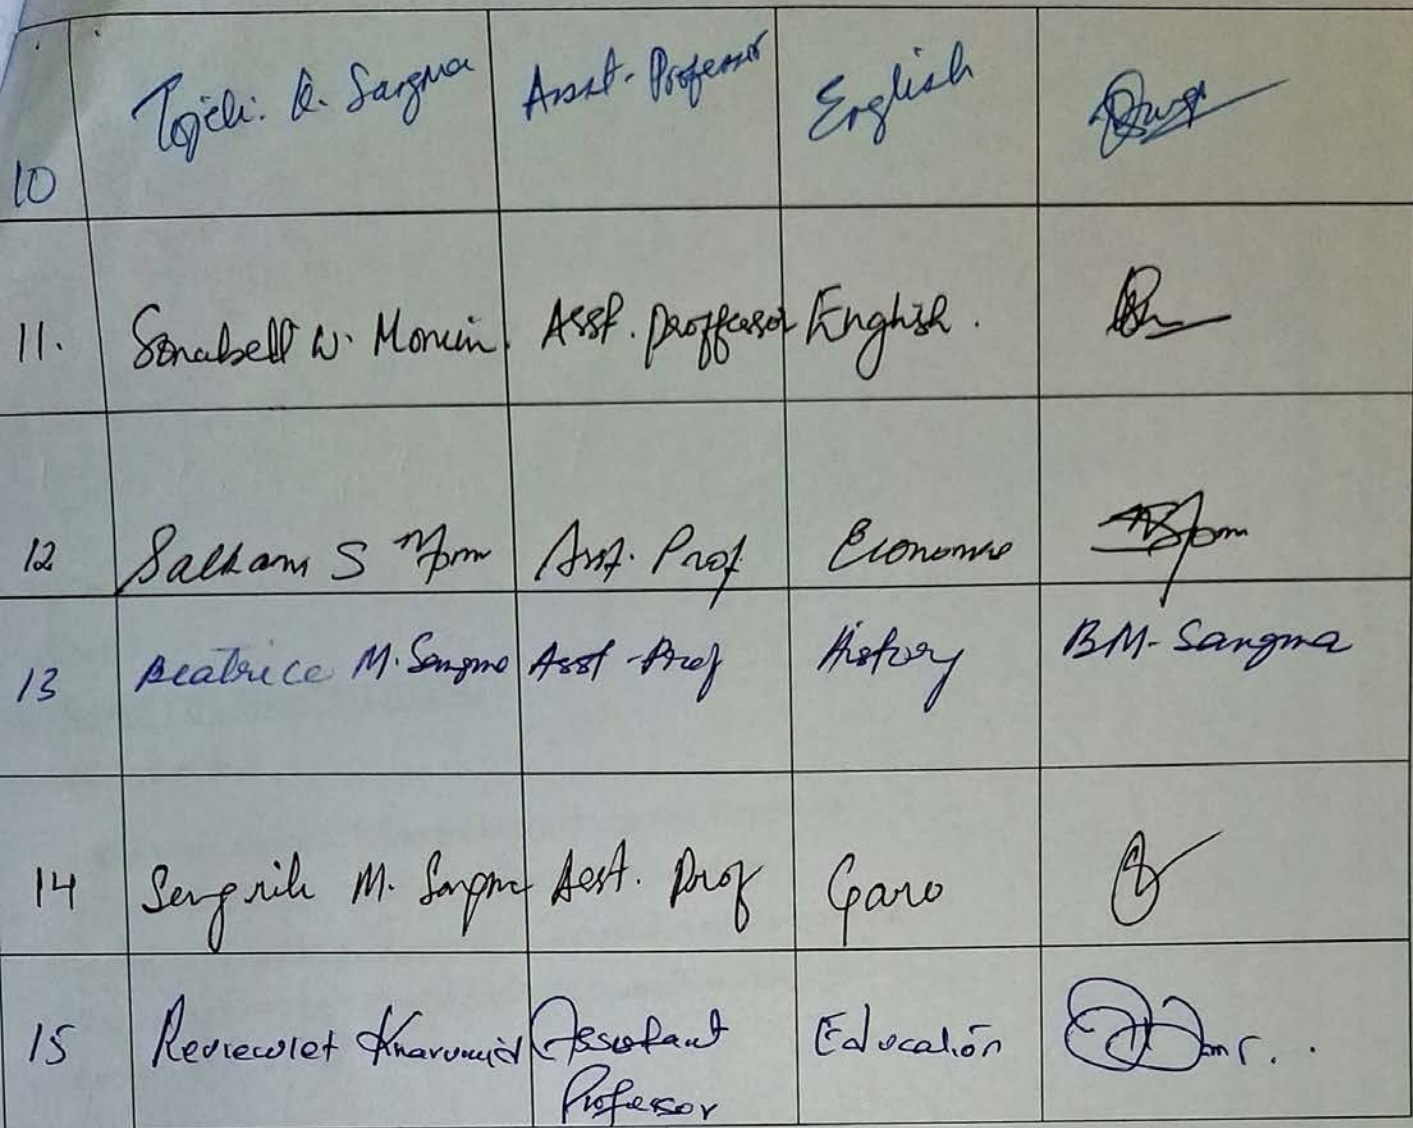 10 Tojchi. R. Sangma Asst. Professor English
11. Sonabell W. Momin Asst. Proffesor English.
12 Salkam S Asst. Prof Economics
13 Beatrice M. Sangma Asst - Prof History BM- Sangma
14 Sengrik M. Sangma Asst. Prof Garo
15 Reviewlet Assistant Education
Professor